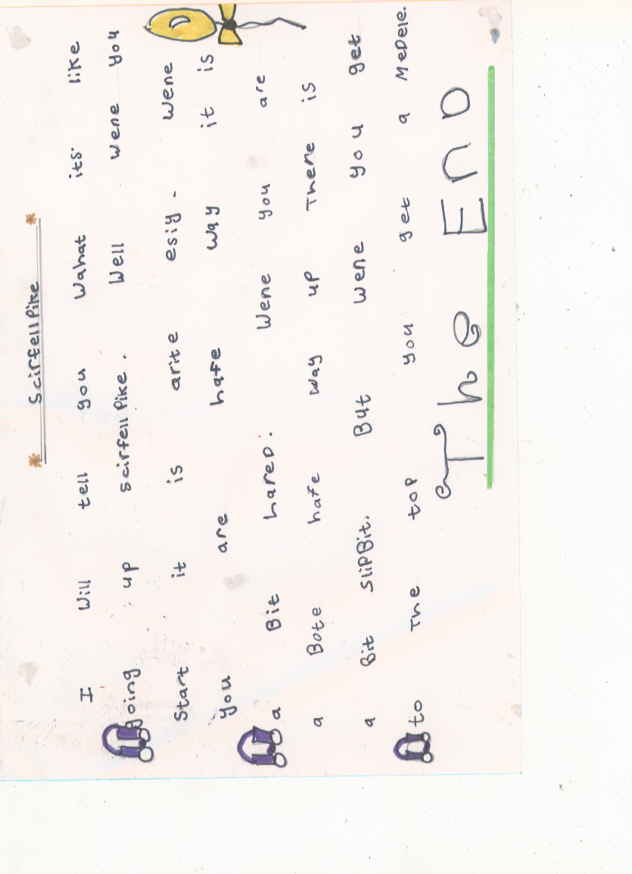 Scirfell Pike
I Will tell you Wahat its like
going up Scirfell Pike. Well Wene you
Start it is arite esiy. Wene
you are hafe way it is
a Bit hared. Wene you are
a Bote hafe way up There is
a Bit SlipBit. But Wene you get
to The top you get a MeDele.
The End